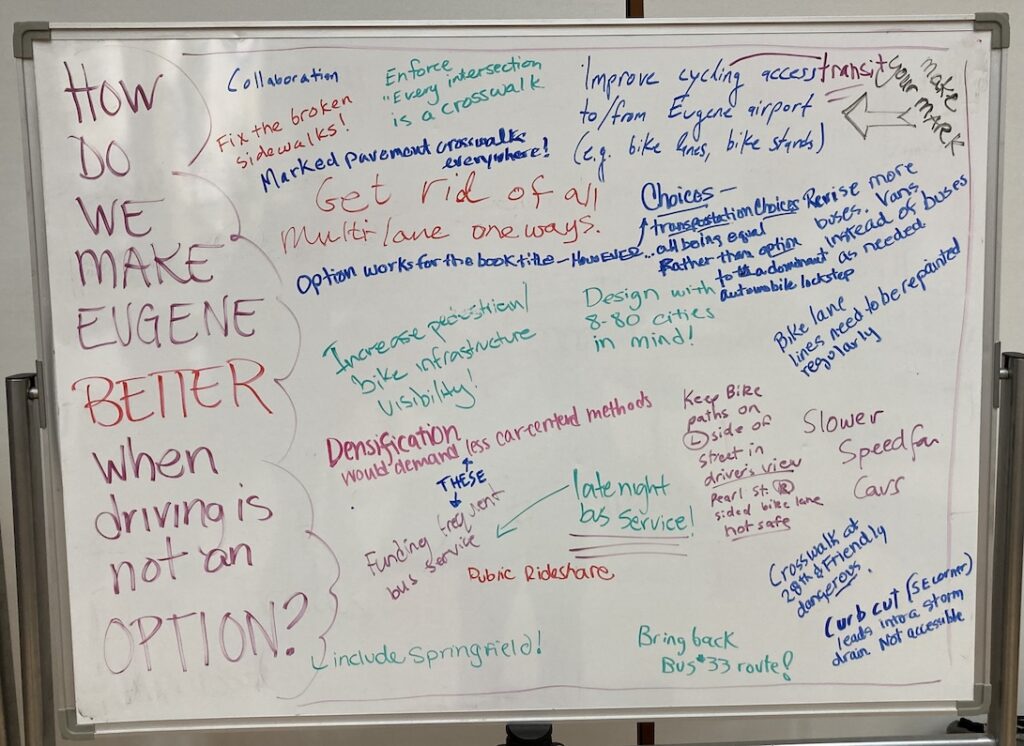 HOW
DO
WE
MAKE
EUGENE
BETTER
when
driving is
not an
OPTION?
Collaboration
Enforce
"Every intersection
is a crosswalk
Fix the broken
sidewalks!
Marked pavement crosswalks
everywhere!
Improve cycling access transit
to/from Eugene airport
(e.g. bike lines, bike stands)
make
your MARK
Get rid of all
multilane oneways.
Option works for the book title - HOWEVER...
Choices -
transportation Choices
all being equal
Rather than option
to a dominant
automobile lockstep
Revise more
buses. Vans
instead of buses
as needed
Increase pedestrian/
bike infrastructure
visibility!
Design with
8-80 cities
in mind!
Bike lane
lines need to be repainted
regularly
Densification
would demand less car-centered methods
THESE
Funding frequent
bus service
late night
bus service!
Public Rideshare
Keep Bike
paths on
L side of
street in
drivers view
Pearl St. R
sided bike lane
not safe
Slower
Speed for
Cars
Crosswalk at
28th & Friendly
dangerous.
Curb cut (SE corner)
leads into a storm
drain. Not accessible
include Springfield!
Bring back
Bus #33 route!